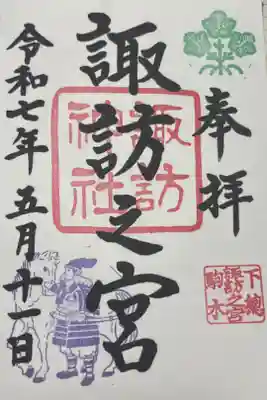 奉拝
諏訪之宮
諏訪
神社
令和七年五月十一日
下穂
諏訪之宮
駒木